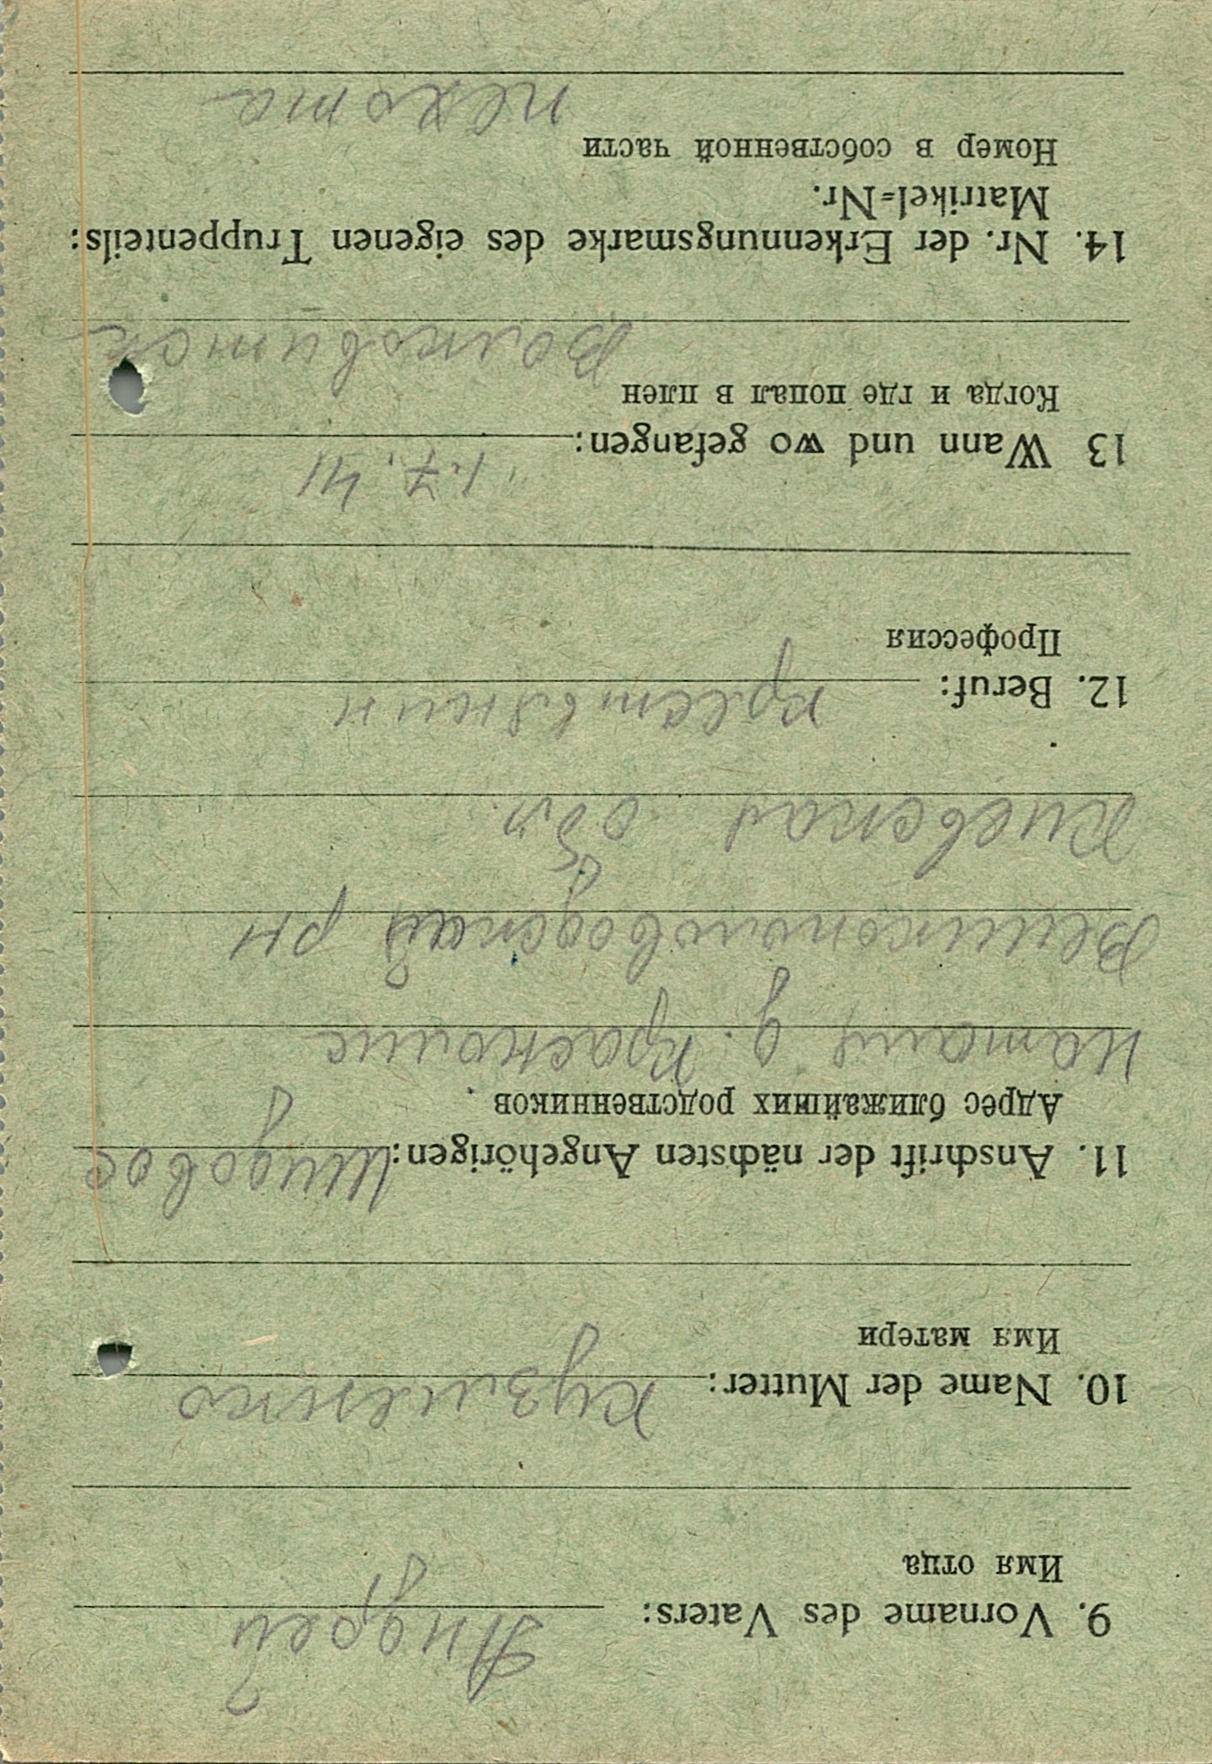 9. Vorname des Vaters: Андрей
Имя отца
10. Name der Mutter: Кузменко
Имя матери
11. Anschrift der nächsten Angehörigen:
Адрес ближайших родственников
д.
рн
Киевская обл.
12. Beruf: крестьянин
Профессия
13 Wann und wo gefangen: 1.7.41
Когда и где попал в плен
14. Nr. der Erkennungsmarke des eigenen Truppenteils:
Matrikel=Nr.
Номер в собственной части
пехота